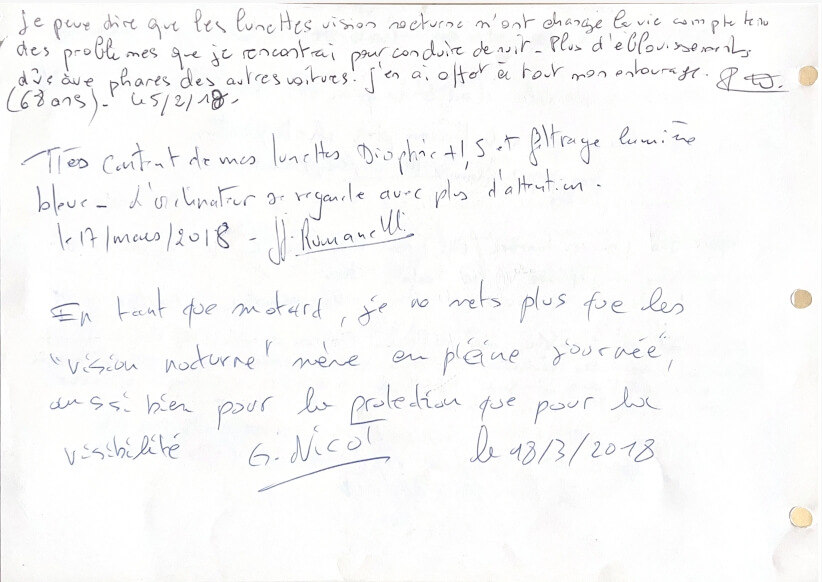 je peux dire que les lunettes vision nocturne m'ont changé la vie compte tenu
des problèmes que je rencontrai pour conduire de nuit - Plus d'éblouissements
dûs aux phares des autres voitures. j'en ai offert à tout mon entourage.
(68 ans) - le 5/2/18.
Très content de mes lunettes Dioptrie +1,5 et filtrage lumière
bleue - L'ordinateur se regarde avec plus d'attention.
le 17/mars/2018 - JJ. Romanelli
En tant que motard, je ne mets plus que les
"vision nocturne" même en pleine journée,
aussi bien pour la protection que pour la
visibilité G. Nicol le 18/3/2018